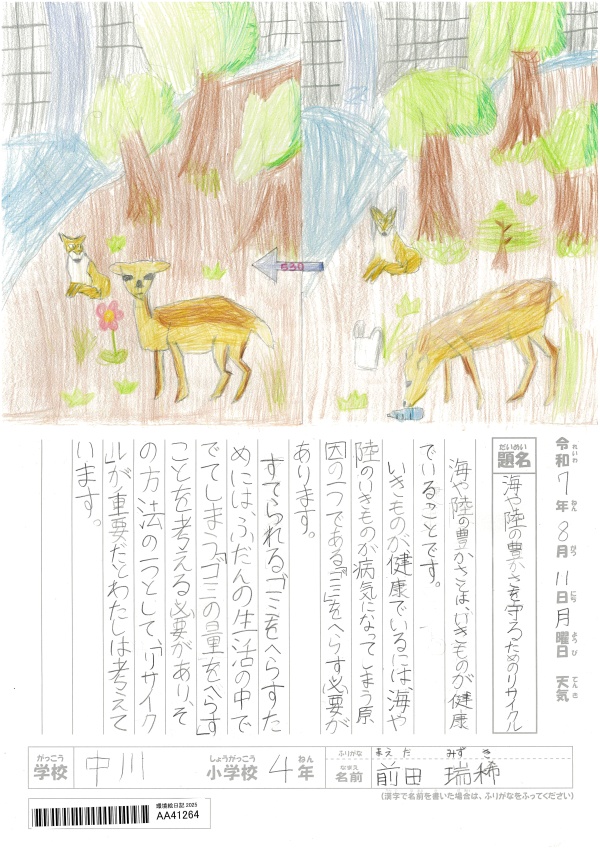 令和7年8月11日月曜日 天気
れいわ ねん がつ にち ようび てんき
題名
だいめい
海や陸の豊かさを守るためのリサイクル
海や陸の豊かさは、いきものが健康
でいることです。
いきものが健康でいるには、海や
陸のいきものが病気になってしまう原
因の一つである「ゴミ」をへらす必要が
あります。
すてられるゴミをへらすた
めには、ふだんの生活の中で
でてしまう「ゴミの量をへらす」
ことを考える必要があり、そ
の方法の一つとして、「リサイク
ル」が重要だとわたしは考えて
います。
がっこう
学校
中川
しょうがっこう
小学校
4
ねん
年
ふりがな
まえだ みずき
なまえ
名前
前田 瑞稀
(漢字で名前を書いた場合は、ふりがなをふってください)
環境絵日記 2025
AA41264